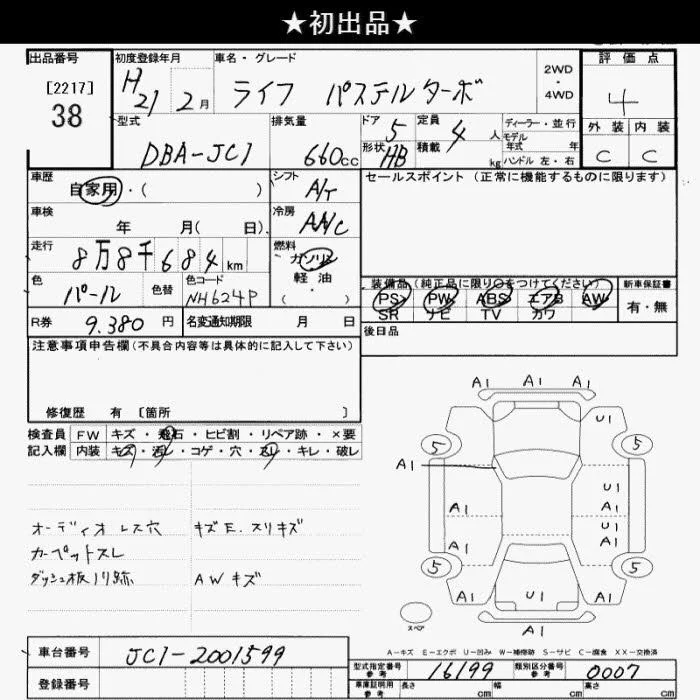 ★初出品★
出品番号
[2217]
38
初度登録年月
H21 2月
車名・グレード
ライフ パステルターボ
2WD
・
4WD
評価点
4
外装 内装
C C
型式
DBA-JC1
排気量
660cc
ドア
5
定員
4人
形状
HB
積載
kg
ディーラー・並行
モデル
年式 年
ハンドル 左・右
車歴
自家用・( )
シフト
A/T
セールスポイント(正常に機能するものに限ります)
車検
年 月( 日)
冷房
AAC
走行
8万8千684km
燃料
ガソリン
軽油
・( )
色
パール
色替
色コード
NH624P
装備品(純正品に限り○をつけてください)
PS PW ABS エアB AW
SR ナビ TV カワ
新車保証書
有・無
R券
9.380円
名変通知期限 月 日
後日品
注意事項申告欄(不具合内容等は具体的に記入して下さい)
修復歴 有 〔箇所 〕
検査員
記入欄
FW キズ・飛石・ヒビ割・リペア跡・×要
内装 キズ・汚レ・コゲ・穴・スレ・キレ・破レ
オーディオレス穴
カーペットスレ
ダッシュ板ノリ跡
キズE.スリキズ
AWキズ
A1 A1 A1
U1
5 5
A1
U1
A1 A1
U1
A1 U1
5 5
A1 U1 A1
A1
スペア
A－キズ E－エクボ U－凹み W－補修跡 S－サビ C－腐食 XX－交換済
車台番号
JC1-2001599
登録番号
型式指定番号
参考
16199
類別区分番号
参考
0007
車庫証明用
参考
長さ cm
幅 cm
高さ cm